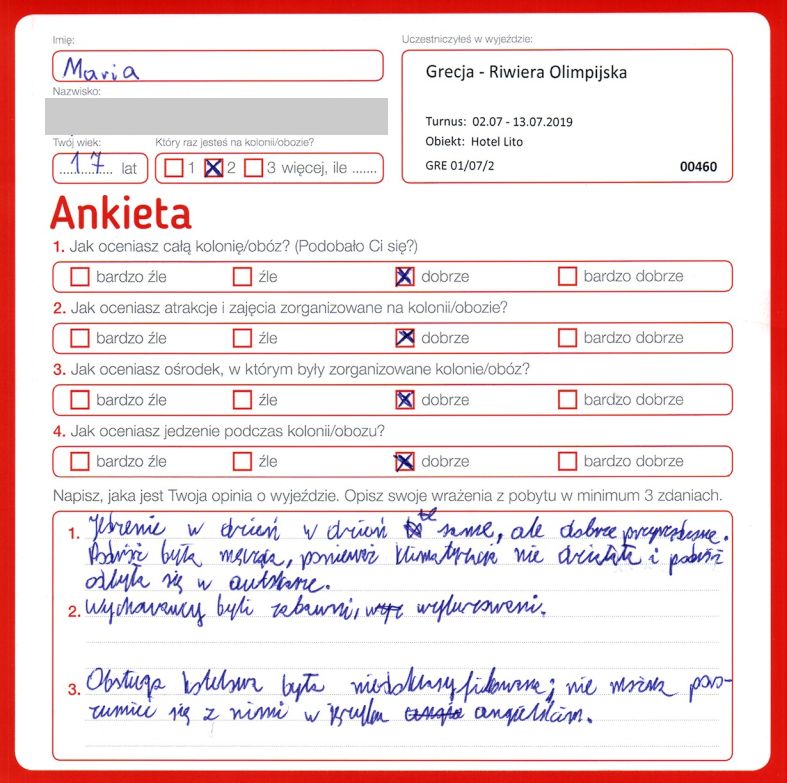 Imię:
Maria
Nazwisko:
Twój wiek:
17 lat
Który raz jesteś na kolonii/obozie?
1 2 3 więcej, ile .......
Uczestniczyłeś w wyjeździe:
Grecja - Riwiera Olimpijska
Turnus: 02.07 - 13.07.2019
Obiekt: Hotel Lito
GRE 01/07/2 00460
Ankieta
1. Jak oceniasz całą kolonię/obóz? (Podobało Ci się?)
bardzo źle źle dobrze bardzo dobrze
2. Jak oceniasz atrakcje i zajęcia zorganizowane na kolonii/obozie?
bardzo źle źle dobrze bardzo dobrze
3. Jak oceniasz ośrodek, w którym były zorganizowane kolonie/obóz?
bardzo źle źle dobrze bardzo dobrze
4. Jak oceniasz jedzenie podczas kolonii/obozu?
bardzo źle źle dobrze bardzo dobrze
Napisz, jaka jest Twoja opinia o wyjeździe. Opisz swoje wrażenia z pobytu w minimum 3 zdaniach.
1. Jedzenie w dzień w dzień te same, ale dobrze przyprawione.
Podróż była męcząca, ponieważ klimatyzacja nie działała i podróż
odbyła się w autokarze.
2. Wychowawcy byli zabawni, wyluzowani.
3. Obsługa hotelowa była niewykwalifikowana; nie można poro-
zumieć się z nimi w języku angielskim.